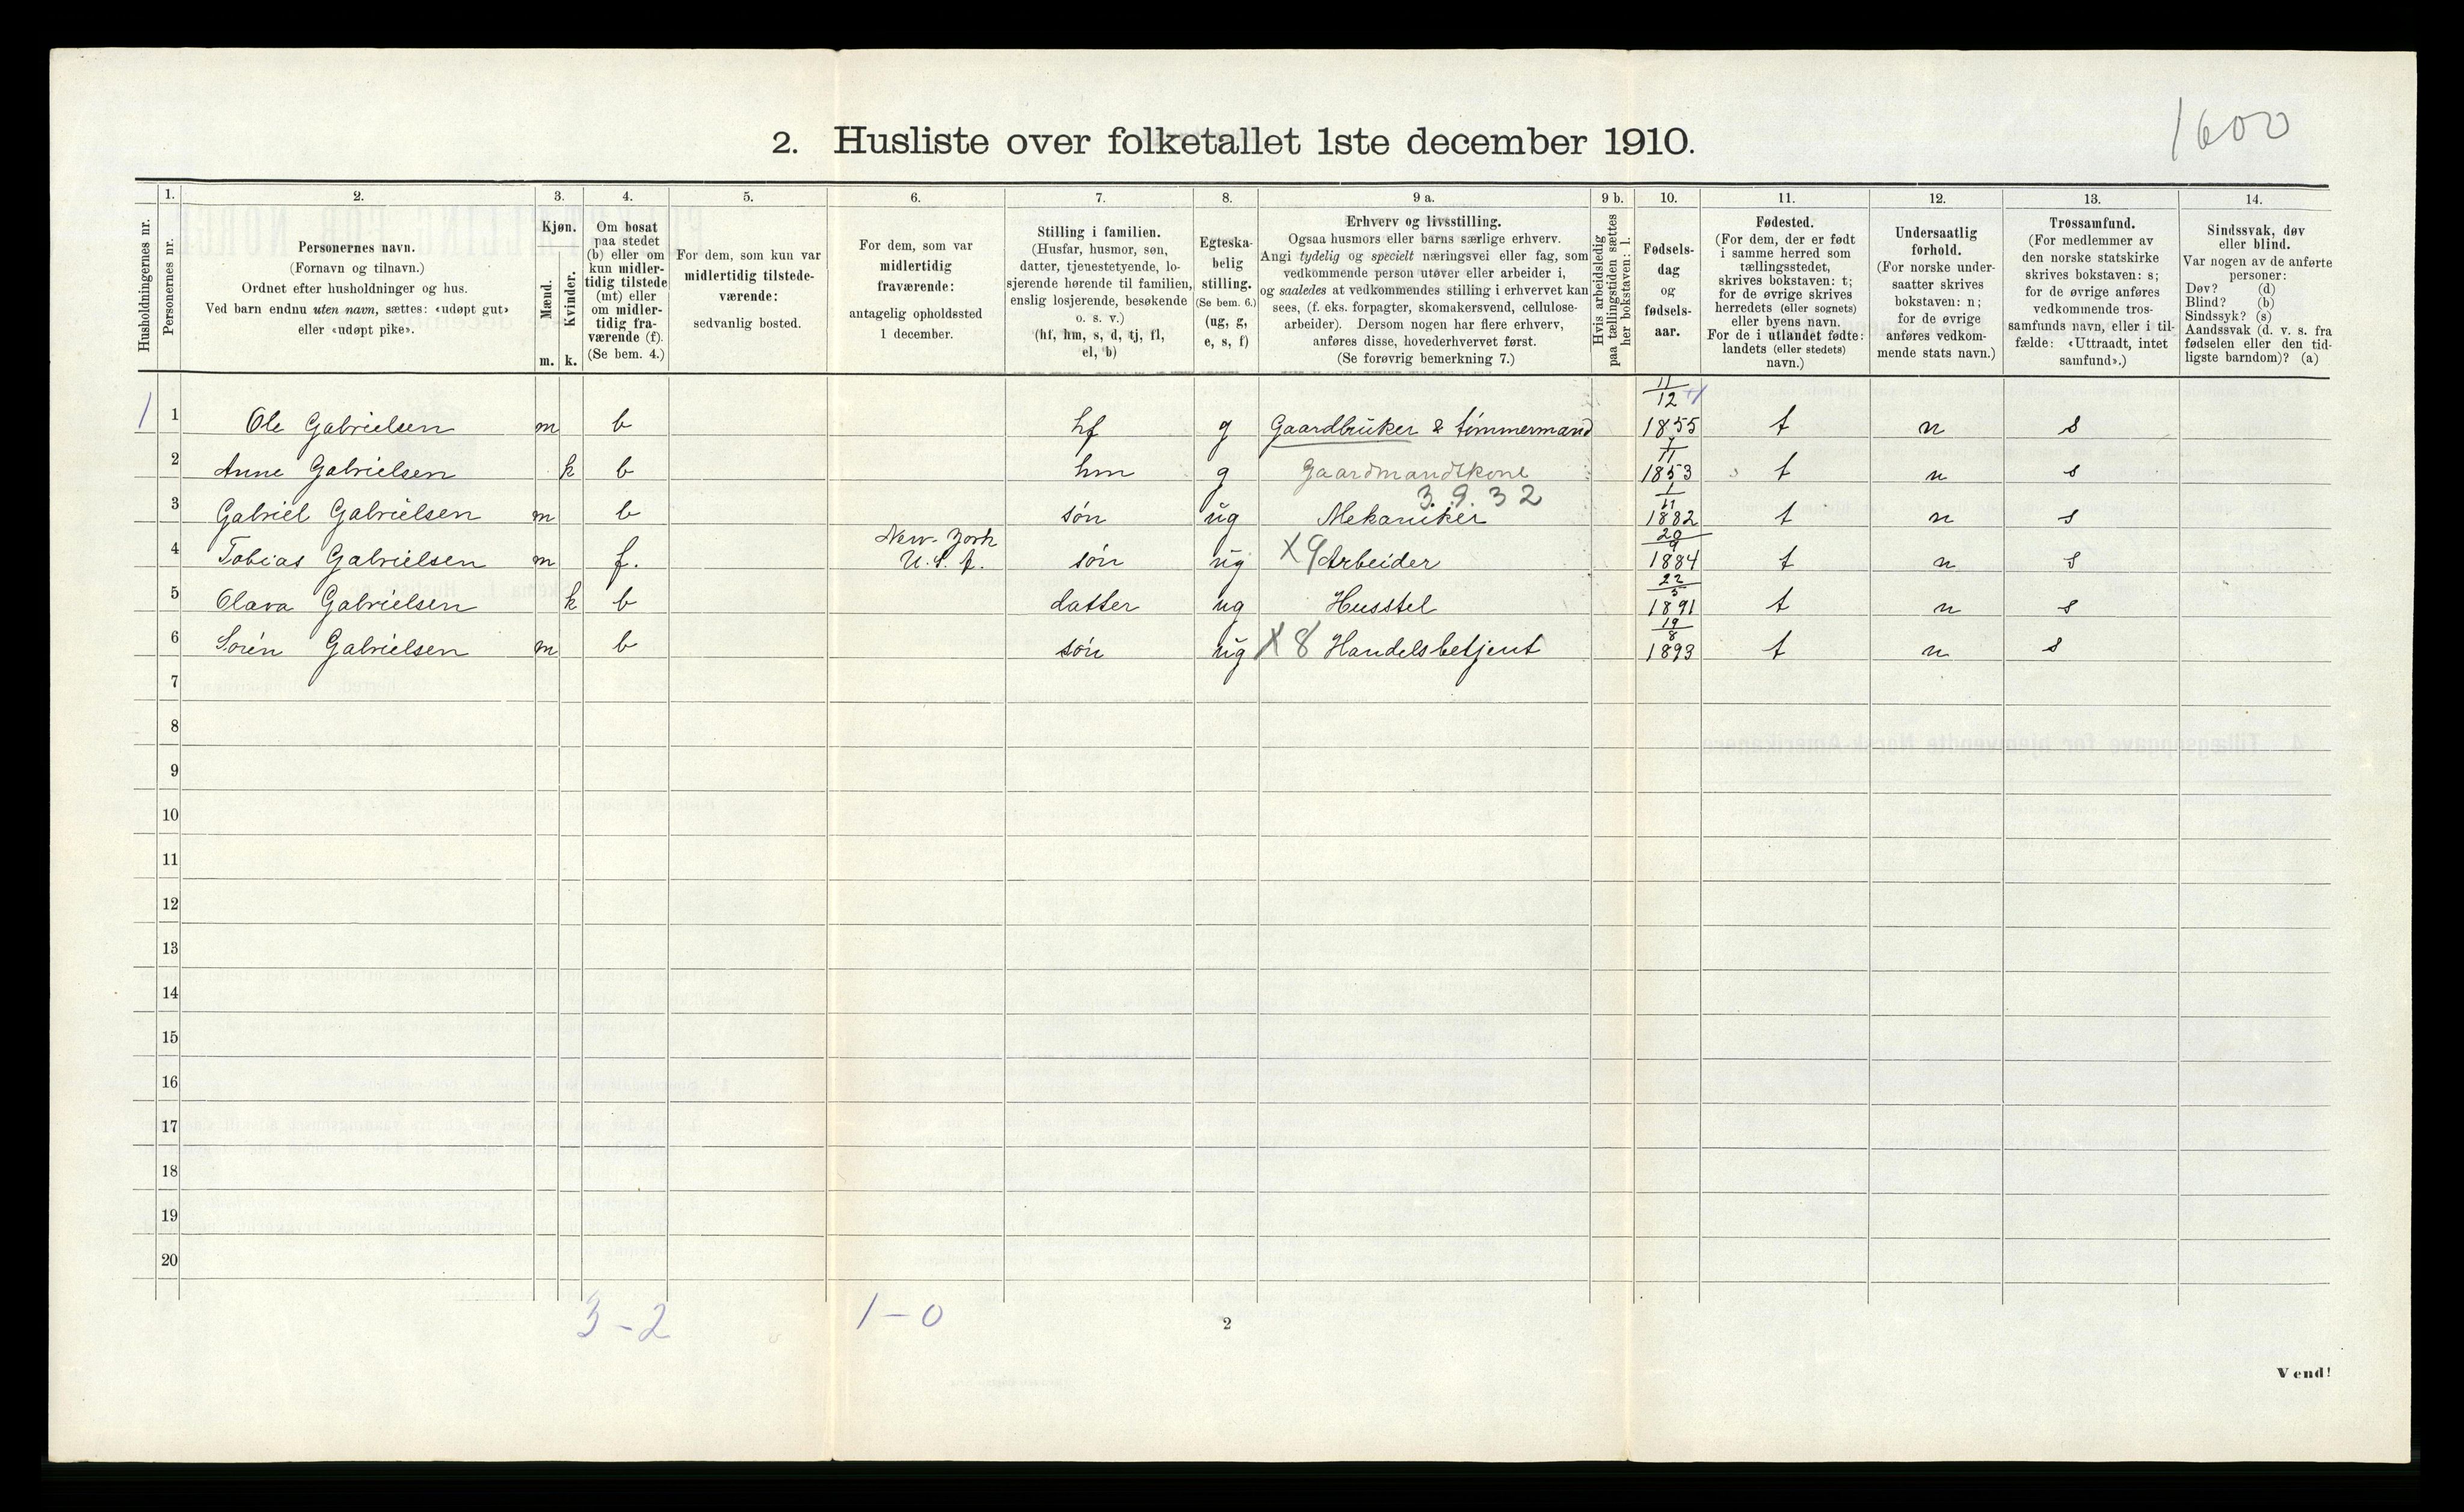 1600
2. Husliste over folketallet 1ste december 1910.
Husholdningernes nr.
1.
Personernes nr.
2.
Personernes navn.
(Fornavn og tilnavn.)
Ordnet efter husholdninger og hus.
Ved barn endnu uten navn, sættes: «udøpt gut»
eller «udøpt pike».
3.
Kjøn.
Mænd.
Kvinder.
m. k.
4.
Om bosat
paa stedet
(b) eller om
kun midler-
tidig tilstede
(mt) eller
om midler-
tidig fra-
værende (f).
(Se bem. 4.)
5.
For dem, som kun var
midlertidig tilstede-
værende:
sedvanlig bosted.
6.
For dem, som var
midlertidig
fraværende:
antagelig opholdssted
1 december.
7.
Stilling i familien.
(Husfar, husmor, søn,
datter, tjenestetyende, lo-
sjerende hørende til familien,
enslig losjerende, besøkende
o. s. v.)
(hf, hm, s, d, tj, fl,
el, b)
8.
Egteska-
belig
stilling.
(Se bem. 6.)
(ug, g,
e, s, f)
9 a.
Erhverv og livsstilling.
Ogsaa husmors eller barns særlige erhverv.
Angi tydelig og specielt næringsvei eller fag, som
vedkommende person utøver eller arbeider i,
og saaledes at vedkommendes stilling i erhvervet kan
sees, (f. eks. forpagter, skomakersvend, cellulose-
arbeider). Dersom nogen har flere erhverv,
anføres disse, hovederhvervet først.
(Se forøvrig bemerkning 7.)
9 b.
Hvis arbeidsledig
paa tællingstiden sættes
her bokstaven: l.
10.
Fødsels-
dag
og
fødsels-
aar.
11.
Fødested.
(For dem, der er født
i samme herred som
tællingsstedet,
skrives bokstaven: t;
for de øvrige skrives
herredets (eller sognets)
eller byens navn.
For de i utlandet fødte:
landets (eller stedets)
navn.)
12.
Undersaatlig
forhold.
(For norske under-
saatter skrives
bokstaven: n;
for de øvrige
anføres vedkom-
mende stats navn.)
13.
Trossamfund.
(For medlemmer av
den norske statskirke
skrives bokstaven: s;
for de øvrige anføres
vedkommende tros-
samfunds navn, eller i til-
fælde: «Uttraadt, intet
samfund».)
14.
Sindssvak, døv
eller blind.
Var nogen av de anførte
personer:
Døv? (d)
Blind? (b)
Sindssyk? (s)
Aandssvak (d. v. s. fra
fødselen eller den tid-
ligste barndom)? (a)
1 1 Ole Gabrielsen m b hf g Gaardbruker & tømmermand 11/12 1855 t n s
2 Anne Gabrielsen k b hm g Gaardmandskone 1853 t n s
3.9.32
3 Gabriel Gabrielsen m b søn ug Mekaniker 1/11 1882 t n s
4 Tobias Gabrielsen m f. New-York U.S.A. søn ug X9 Arbeider 20/9 1884 t n s
5 Olava Gabrielsen k b datter ug Husstel 22/5 1891 t n s
6 Sørén Gabrielsen m b søn ug X 8 Handelsbetjent 19/8 1893 t n s
7
8
9
10
11
12
13
14
15
16
17
18
19
20
3-2 1-0
2
Vend!